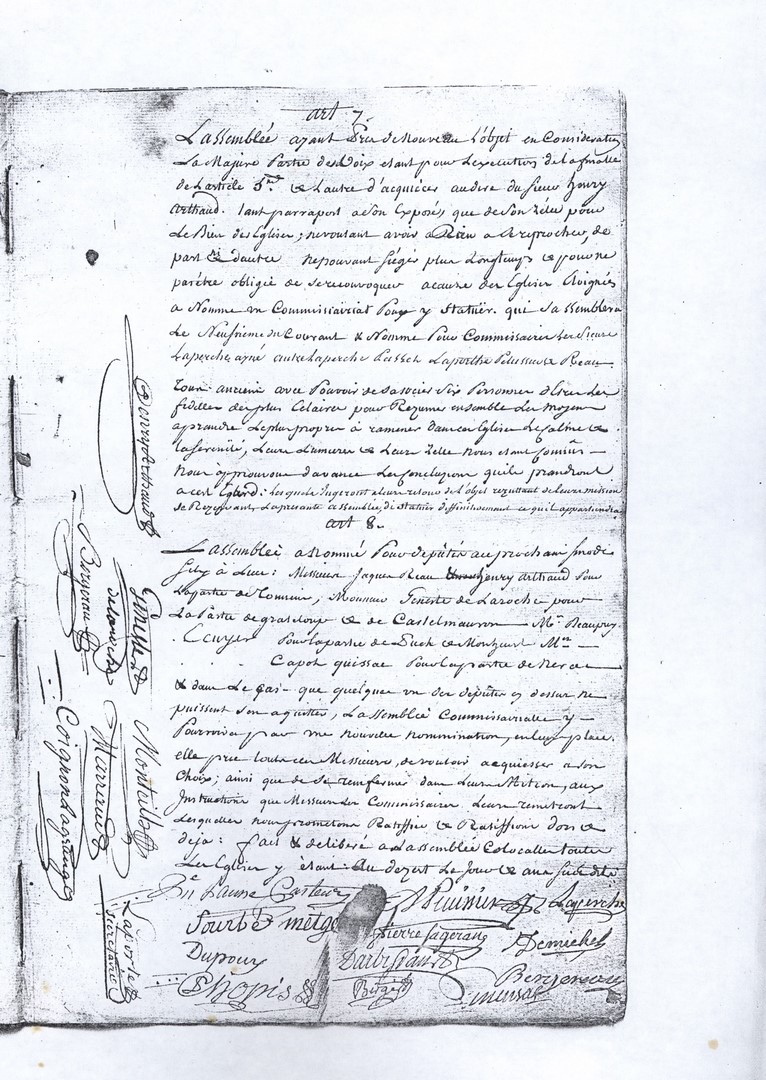 art 7.
L'assemblée ayant Pris de Nouveau l'objet en Consideration
La Majure Partie des Voix etant pour l'execution de la finalle
de L'article 5me & L'autre d'acquiécer au dire du sieur henry
arthaud. tant par raport a Son Exposés que de Son Zélle pour
Le Bien des Eglises; ne voulant avoir a Rien a Se reprocher, de
part & d'autre ne pouvant siéger plus Longtemps & pour ne
parétre obligié de Se reconvoquer acause des Eglises Eloignés
a Nommé un Commissairiat Pour y Statuër. qui S'assemblera
Le Neufieme du Courant & Nomme Pour Commissaires Les Sieurs
Laperche, ayné autre Laperche Laporthe Pelissier & Reau
Tous anciens avec Pouvoir de Sasocier Six Personnes d'Entre Les
fidelles des plus Eclairés pour Rezumer ensemble Les moyens
aprandre Le plus propres à ramener dans cest Eglise Le Calme &
la Sérénité, Leurs Lumieres & Leurs Zelle Nous etant Connûs
Nous approuvons d'avance Les Conclusions qu'ils prandront
a cest Egard: Les quels Jugeront a leur retour de L'objet rezultant de leurs mission
Se Rezervant, La presante assemblée, de Statuer deffinitivement ce qu'il appartiendra
art 8.
L'assemblée a Nommé Pour députés au prochain Sinode
Messieurs Jaques Reau henry arthaud Pour
La partie de Tonneins, Monsieur Geneste de Laroche pour
La Partie de grateloup & de Castelmauron Mr. Beaupuy
Ecuyer Pour la partie de Puch & Monheurt Mr
Capot quissac Pour La partie de Nerac
& dans Le Cas que quelques un des députés cy dessus ne
puissent Son aquitter, L'assemblée Commissairialle y
Pourvoira par une Nouvelle nommination, en leur place.
elle prie toutes ces Messieurs, de vouloir acquiesser a Son
Choix; ainsi que de Se renfermer dans Leurs Mition, aux
Jnstructions que Messieurs Les Commissaires Leurs remetront
Lesquelles Nous prometons Ratiffier & Ratiffions dors &
deja: fait & deliberé a L'assemblée Colocalle toutes
Les Eglises y étant. au dezert Le Jour & ans Susdits
Casteur
Laperche
Sourbé
metge
Pierre Lagerans
Demichel
Dupouy
Bergereau
Chopis
Berges
Henry Arthaud
J Bergereau
Geneste
de Laroche
Montails
Marraud
Coignon Lagrange
Laporte
Secretaire